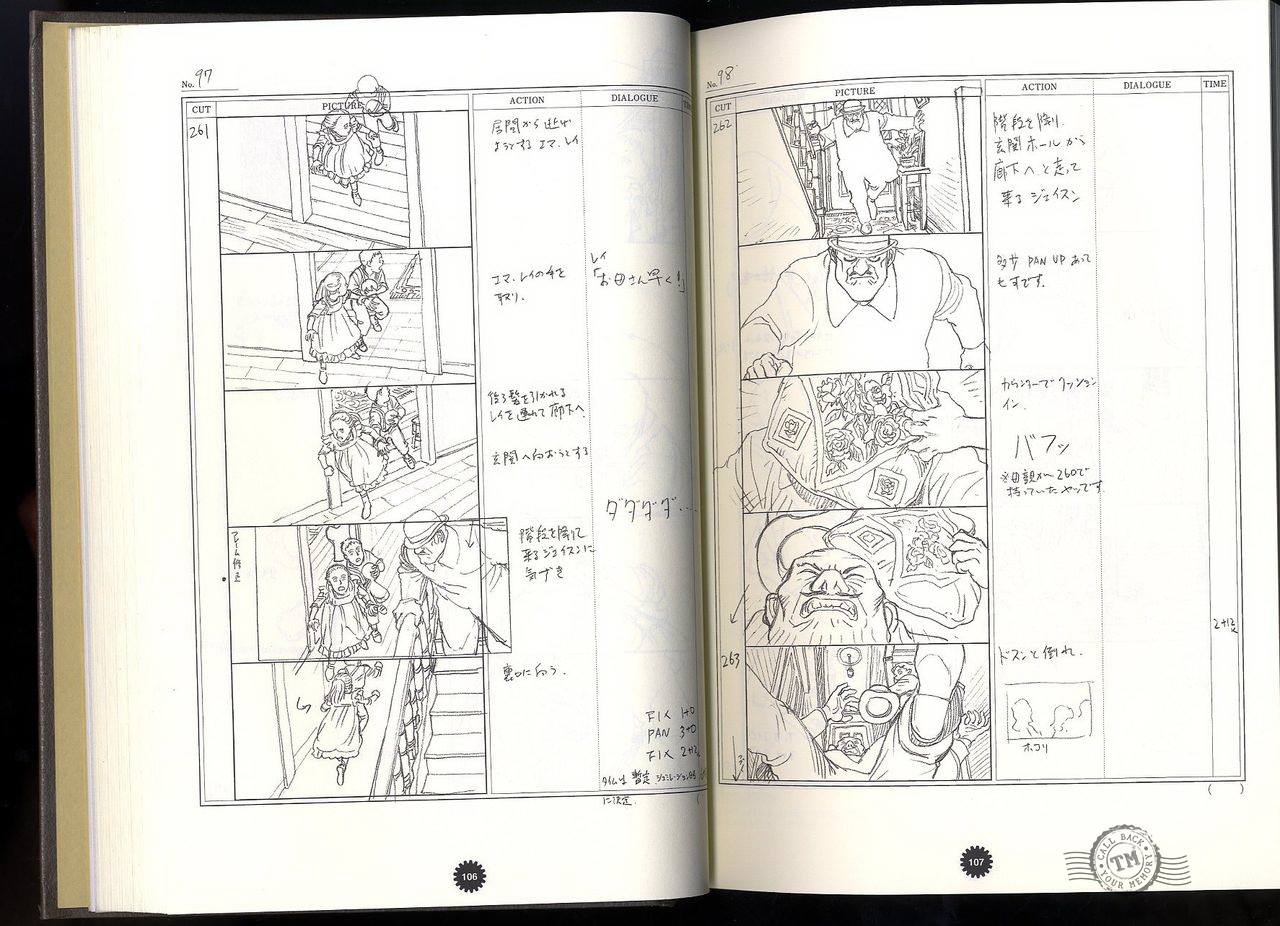 No. 97
CUT
PICTURE
ACTION
DIALOGUE
261
居間から逃げ
ようとするエマ、レイ
エマ、レイの手を
取り、
レイ
「お母さん早く!」
後ろ髪を引かれる
レイを連れて廊下へ。
玄関へ向おうとする
ダダダダ…
フレーム修正
階段を降りて
来るジェイスンに
気ずき
裏口に向う。
FIX 1+0
PAN 3+0
FIX 2+12
タイムは暫定
に決定.
106
No. 98
CUT
PICTURE
ACTION
DIALOGUE
TIME
262
階段を降り、
玄関ホールから
廊下へと走って
来るジェイスン
多少 PAN UP あって
も可です。
カウンターでクッション
イン.
バフッ
※母親が260で
持っていたヤツです
2+12
263
ドスンと倒れ.
ホコリ
( )
107
CALL BACK
TM
YOUR MEMORY